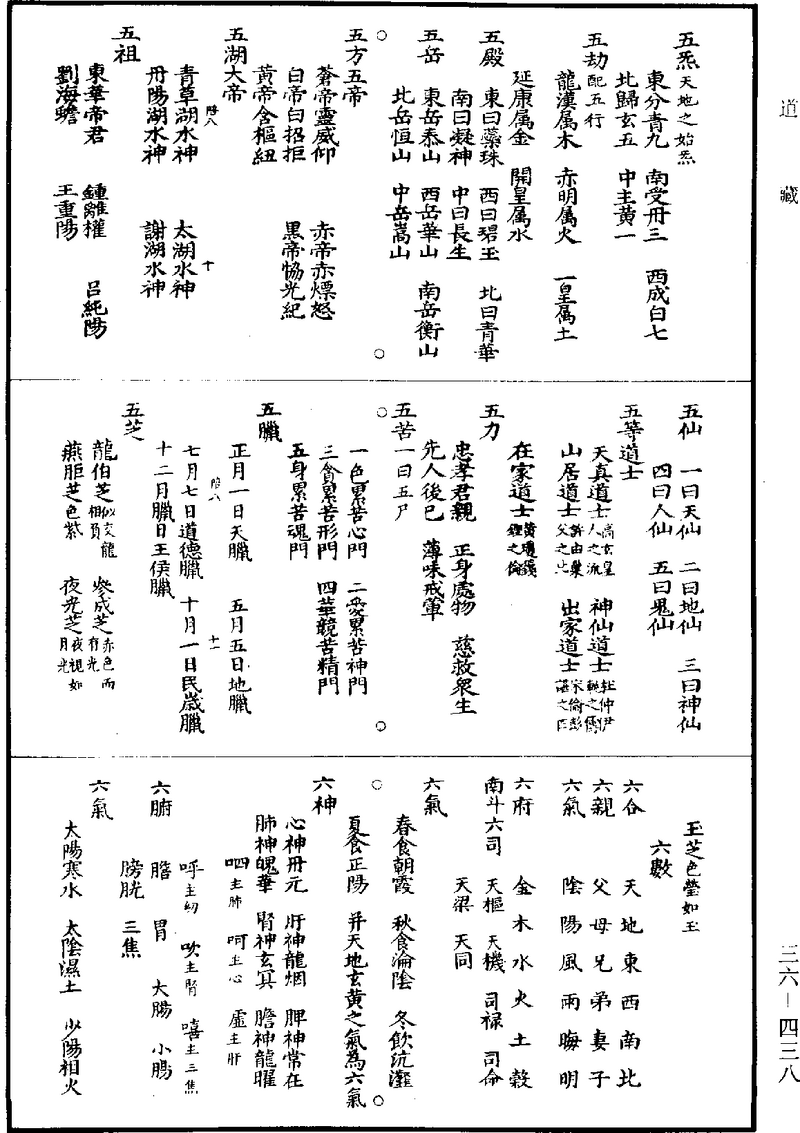 道藏
五炁天地之始炁
東分青九　南受丹三　西成白七
北歸玄五　中主黃一
五劫配五行
龍漢屬木　赤明屬火　一皇屬土
延康屬金　開皇屬水
五殿　東曰蘂珠　西曰碧玉　北曰青華
南曰凝神　中曰長生
五岳　東岳泰山　西岳華山　南岳衡山
北岳恒山　中岳嵩山
○　○
五方五帝
蒼帝靈威仰　赤帝赤熛怒
白帝白招拒　黑帝恊光紀
黃帝含樞紐
五湖大帝
隂八　十
青草湖水神　太湖水神
丹陽湖水神　謝湖水神
五祖
東華帝君　鍾離權　呂純陽
劉海蟾　王重陽
五仙　一曰天仙　二曰地仙　三曰神仙
四曰人仙　五曰鬼仙
五等道士
天真道士高玄皇人之流　神仙道士杜仲尹軌之儔
山居道士許由巢父之比　出家道士宋倫彭諶之匹
在家道士黃瓊籛鏗之倫
五力
忠孝君親　正身處物　慈救衆生
先人後已　薄味戒葷
五苦一曰五尸
○　○
一色累苦心門　二愛累苦神門
三貪累苦形門　四華競苦精門
五身累苦魂門
五臘
正月一日天臘　五月五日地臘
隂八　十一
七月七日道德臘　十月一日民歲臘
十二月臘日王侯臘
五芝
龍伯芝似交龍相負　參成芝赤色而有光
燕胎芝色紫　夜光芝夜視如月光
玉芝色瑩如玉
六數
六合　天地東西南北
六親　父母兄弟妻子
六氣　陰陽風雨晦明
六府　金木水火土穀
南斗六司　天樞　天機　司禄　司命
天梁　天同
六氣
春食朝霞　秋食淪陰　冬飲沆瀣
○　○
夏食正陽　并天地玄黃之氣為六氣
六神
心神丹元　肝神龍烟　脾神常在
肺神皓華　腎神玄冥　膽神龍曜
呬主肺　呵主心　虛主肝
呼主　吹主腎　嘻主三焦
六腑　膽　胃　大腸　小腸
膀胱　三焦
六氣
太陽寒水　太陰濕土　少陽相火
三六－四三八